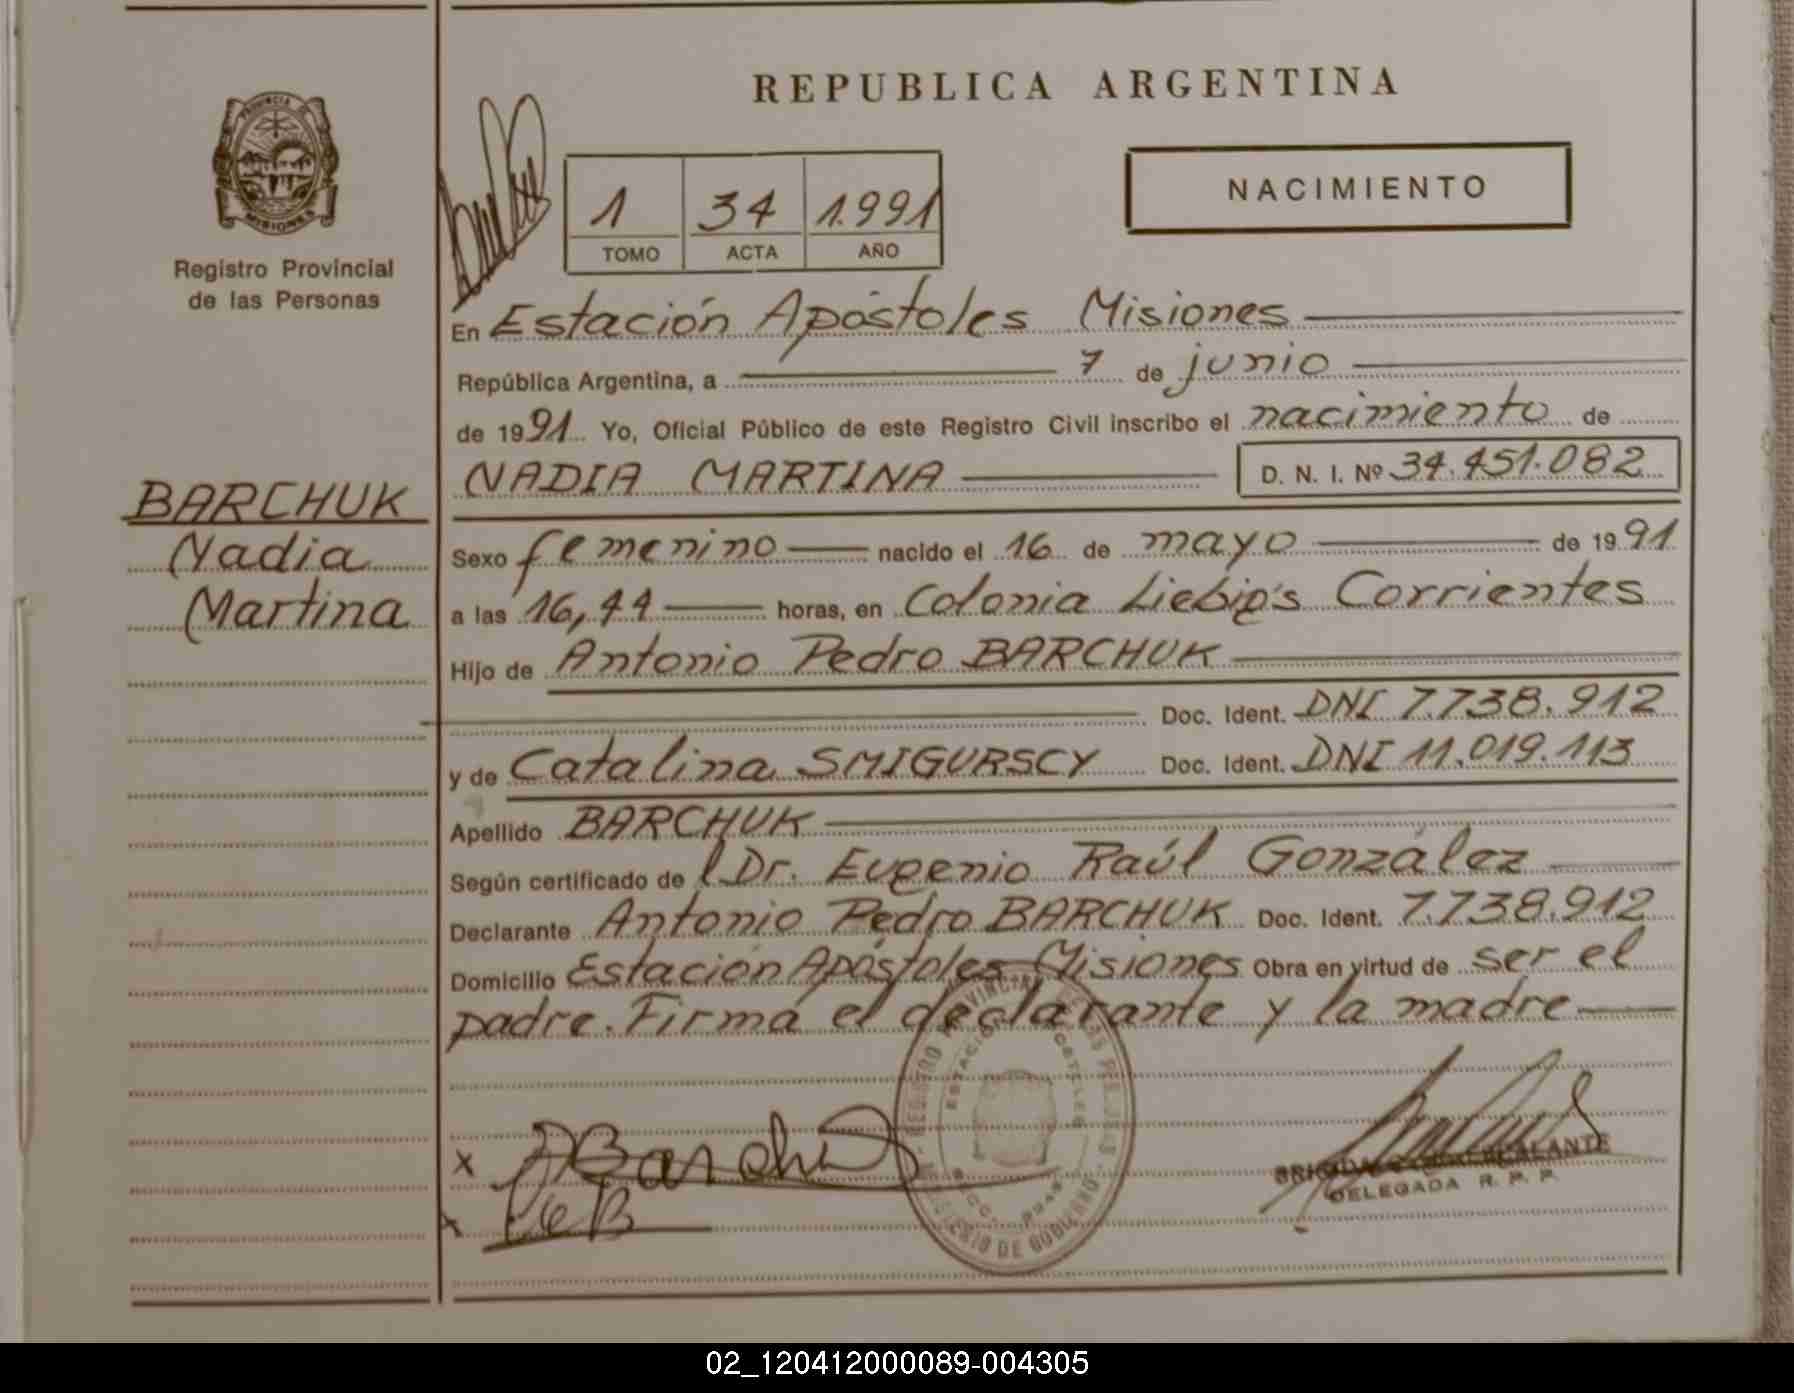 REPUBLICA ARGENTINA
PROVINCIA DE
MISIONES
Registro Provincial
de las Personas
NACIMIENTO
1 34 1.991
TOMO ACTA AÑO
En Estación Apóstoles Misiones
República Argentina, a 7 de junio
de 1991 Yo, Oficial Público de este Registro Civil inscribo el nacimiento de
NADIA MARTINA D. N. I. Nº 34.451.082
BARCHUK
Nadia
Martina
Sexo femenino nacido el 16 de mayo de 1991
a las 16,44 horas, en Colonia Liebig's Corrientes
Hijo de Antonio Pedro BARCHUK
Doc. Ident. DNI 7.738.912
y de Catalina SMIGURSCY Doc. Ident. DNI 11.019.113
Apellido BARCHUK
Según certificado de l Dr. Eugenio Raúl González
Declarante Antonio Pedro BARCHUK Doc. Ident. 7.738.912
Domicilio Estación Apóstoles Misiones Obra en virtud de ser el
padre. Firma el declarante y la madre
REGISTRO PROVINCIAL DE LAS PERSONAS
MINISTERIO DE GOBIERNO
x ABarchuk
x CB
DELEGADA R. P. P.
02_120412000089-004305